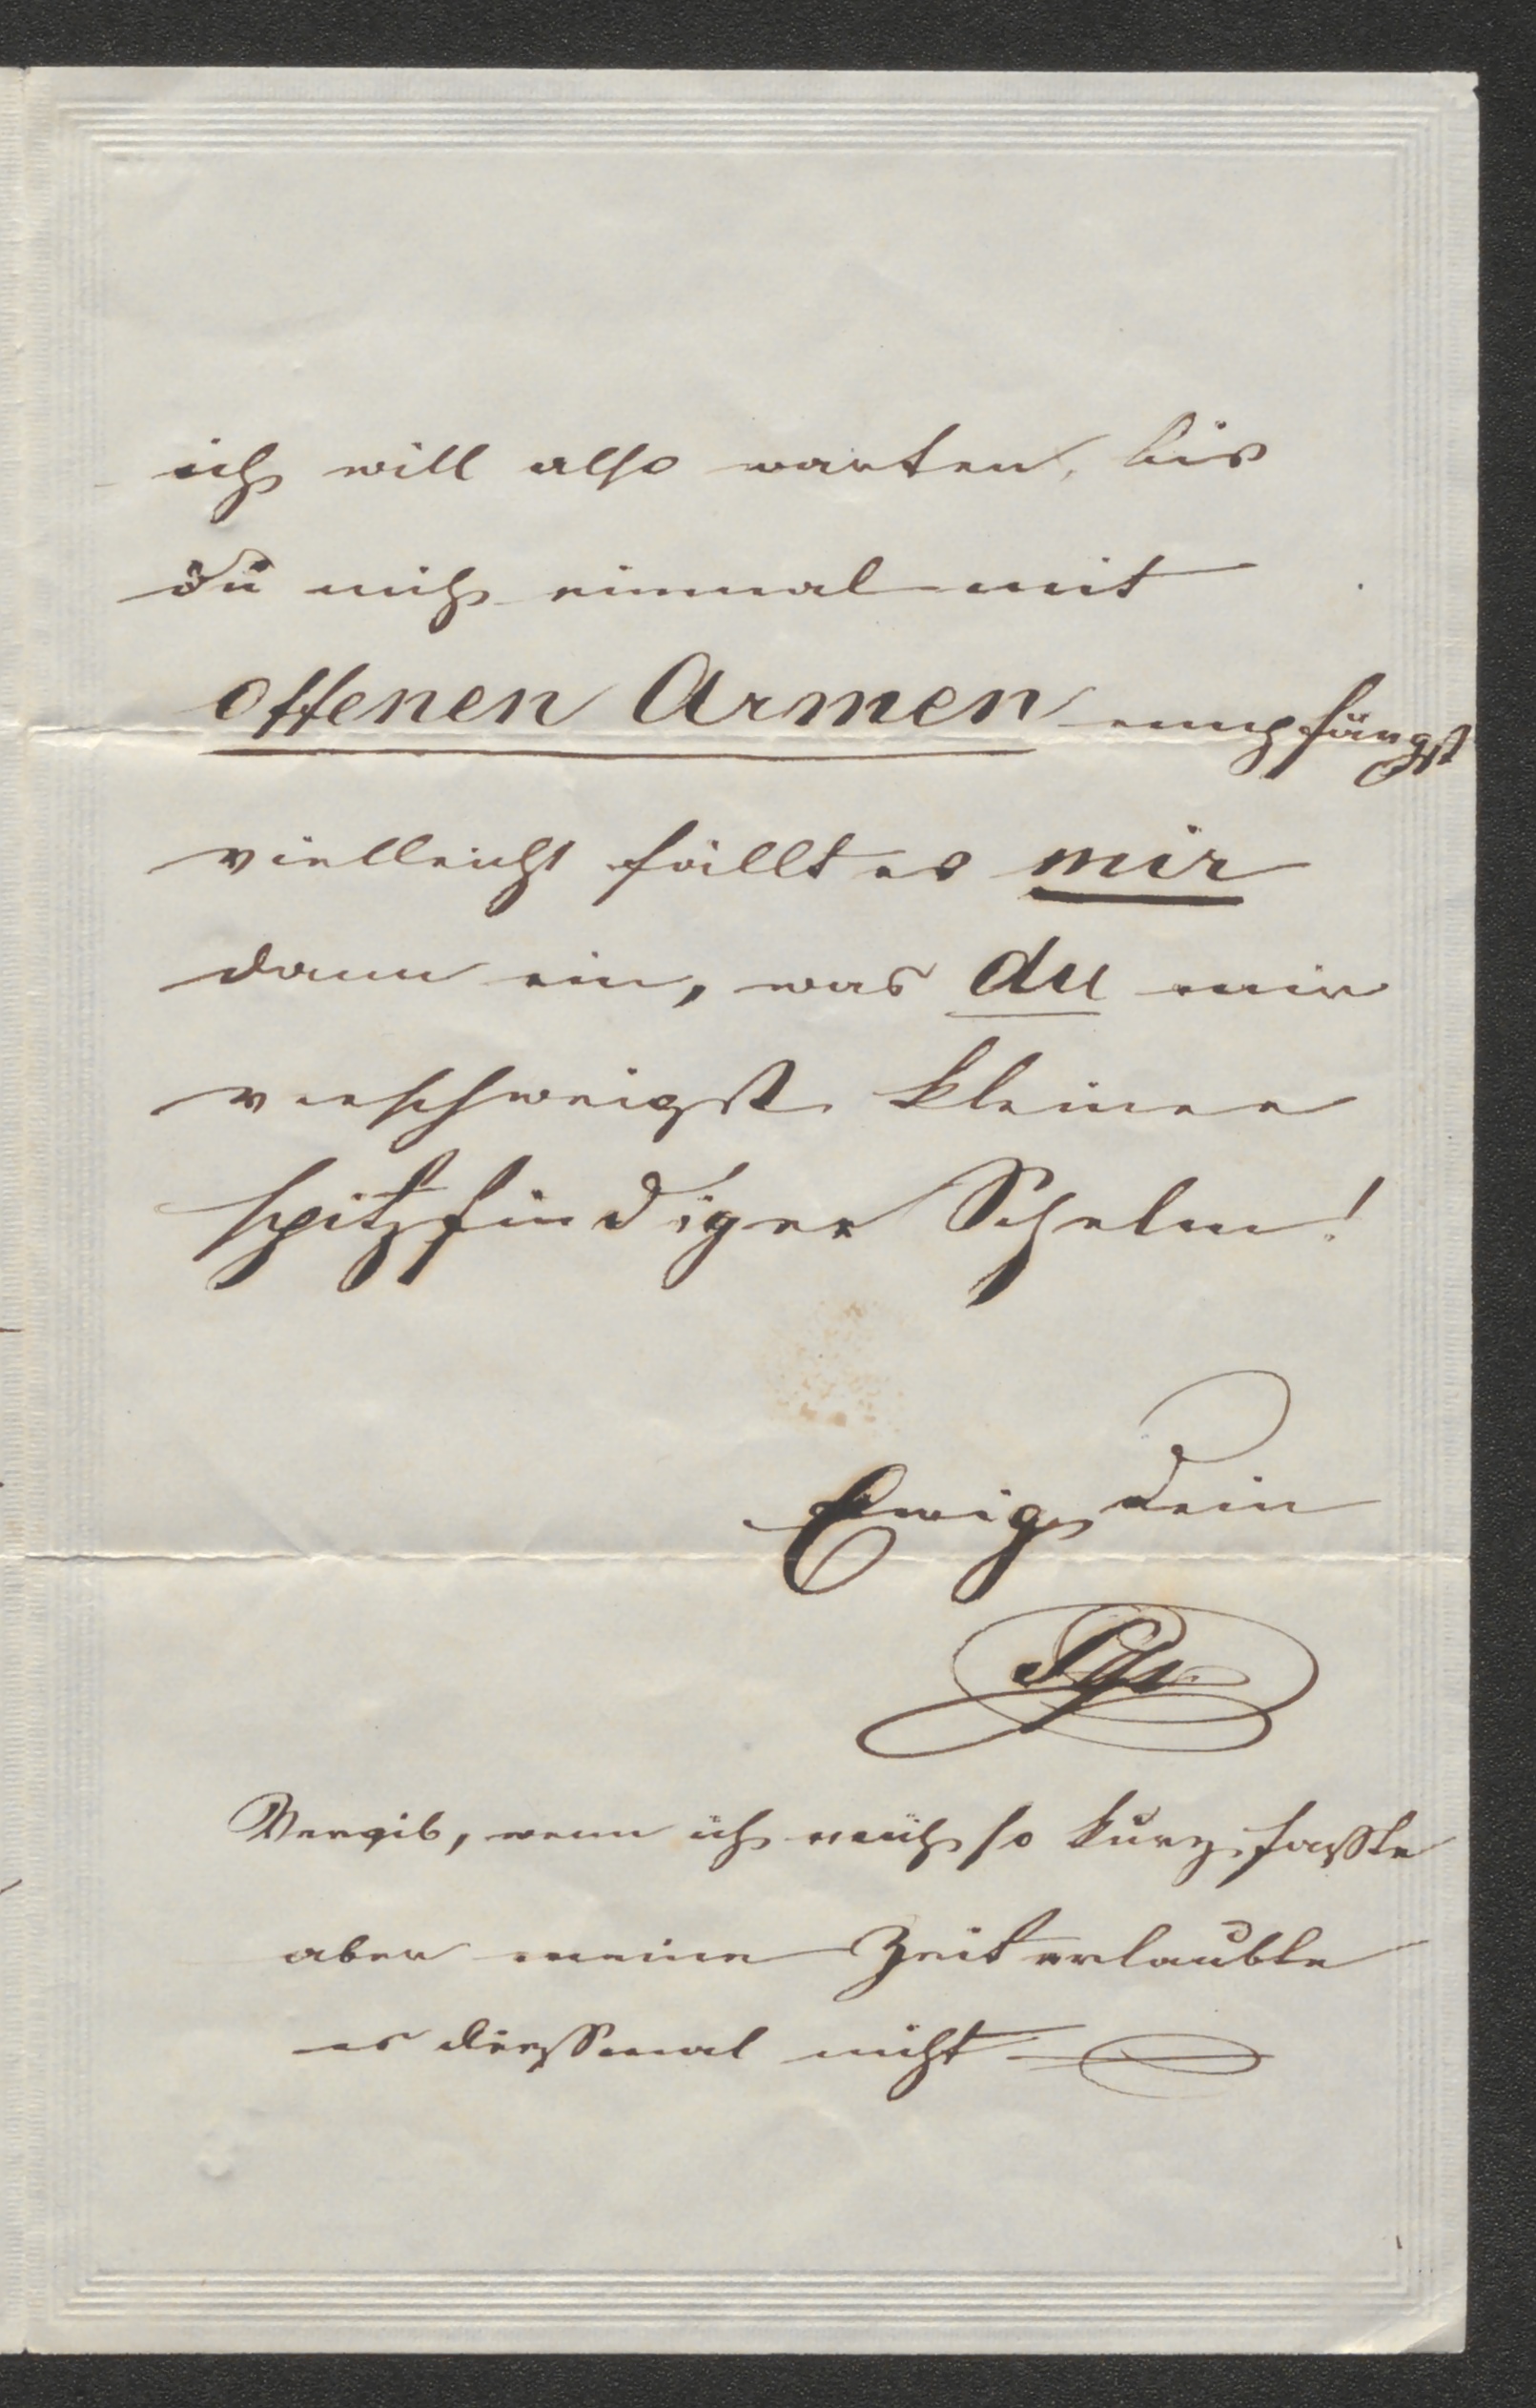 ich will also warten, bis
du mich einmal mit
offenen Armen empfängst
vielleicht fällt es mir
dann ein, was du mir
verschweigst kleiner
spitzfindiger Schelm!
Ewig Dein
Vergib, wenn ich mich so kurz fasste
aber meine Zeit erlaubte
es diessmal nicht